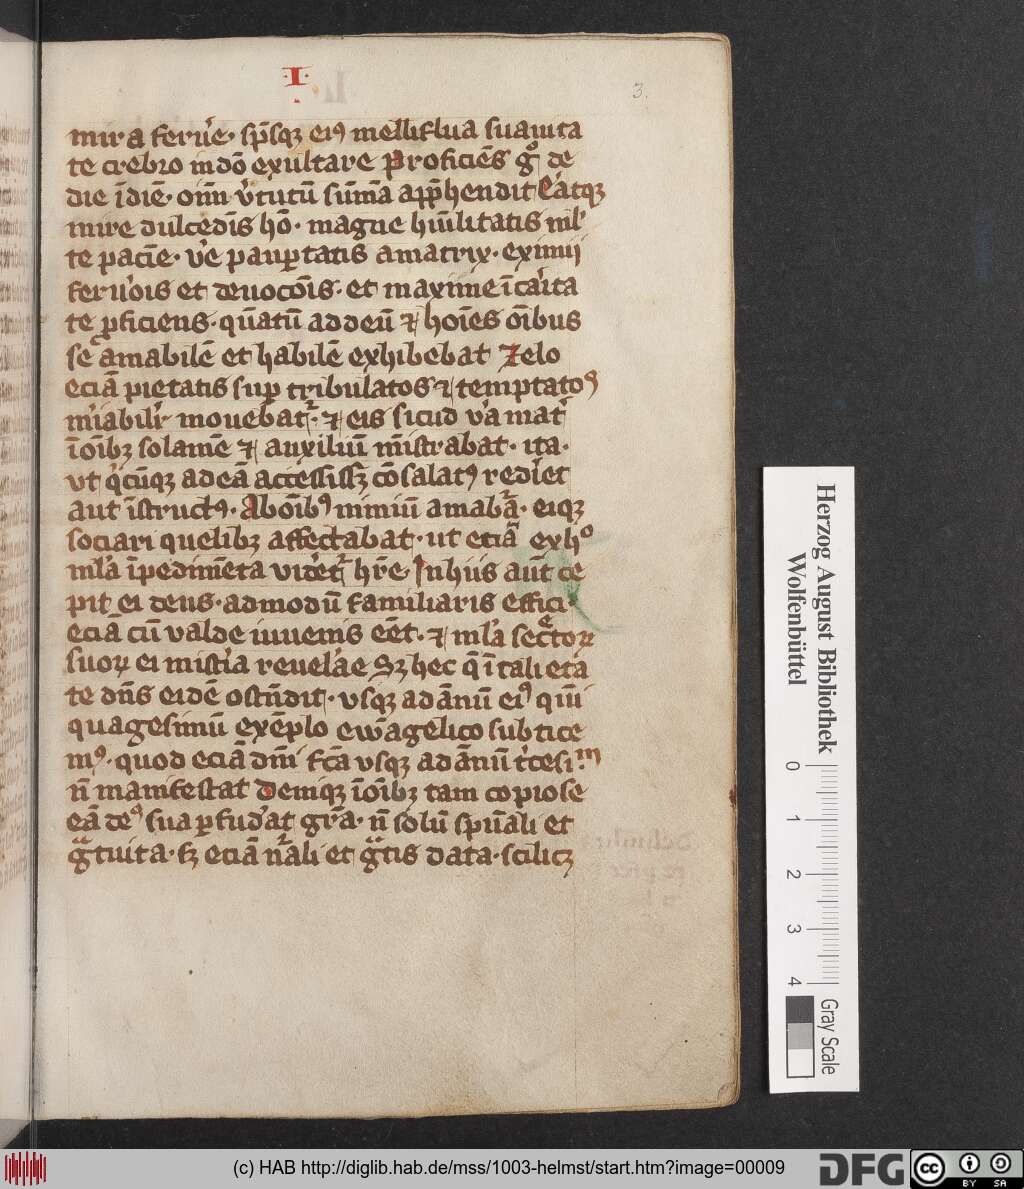 ·I·
3.
mira ferūe· sp̄sqꝫ eiꝰ melliflua suauita
te crebro in dō exultare Proficiēs gͦ de
die ī diē· om̄ v̾tutū sūmā app̄hendit
mire dulcedīs hō· magne hūilitatis
te paciē· ṽe paup̱tatis amatrix· eximij
feru̾ois et deuocōis· et maxime ī ca̾ita
te ꝓficiens· q̄ntū ad deū ⁊ hoīes oībus
se amabilē et habilē exhibebat Zelo
eciā pietatis sup̱ tribulatos ⁊ temptatoꝰ
m̾iabilit̾ mouebat᷑· ⁊ eis sicud v̾a mat̾
ī oībꝫ solamē ⁊ auxiliū m̄istrabat· ita·
vt q̾cūqꝫ ad eā accessissꝫ cōsalatꝰ redi̾et
aut īstructꝰ· Ab oībꝰ nimiū amabat᷑· eiqꝫ
sociari quelibꝫ affectabat· ut eciā exhͦ
ml̾a īpedim̄eta vide̾t᷑ hr̄e Inhiis aūt ce
pit ei deus· ad modū familiaris effici·
eciā cū valde iuuenis eēt· ⁊ ml̾a sec̾toꝝ
suoꝝ ei mist̾ia reuela̾e Sꝫ hec q̄ ī tali eta
te dn̄s eidē ostn̄dit· vsqꝫ ad ānū eiꝰ qui̾
quagesimū exēplo ewāgelico subtice
mꝰ· quod eciā dn̄i fc̄a vsqꝫ ad ānū t̾cesi.m
n̄ manifestat Deniqꝫ ī oībꝫ tam copiose
eā deꝰ sua p̱fud̾at gr̄a· n̄ solū spūali et
gᷓtuita· sꝫ eciā nᷓali et gᷓtis data· scilicꝫ
Herzog August Bibliothek
Wolfenbüttel
0 1 2 3 4
Gray Scale
(c) HAB http://diglib.hab.de/mss/1003-helmst/start.htm?image=00009
DFG
cc
BY SA